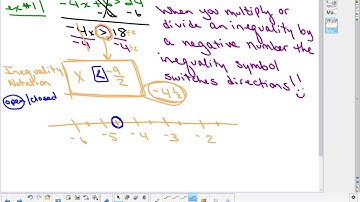 ex#1
-4x + > 24
-6
-4x > 18
-4 -4
When you multiply or
divide an inequality by
a negative number the
inequality symbol
switches directions!!
Inequality
Notation
x < -9/2
-4 1/2
open/closed
-6 -5 -4 -3 -2